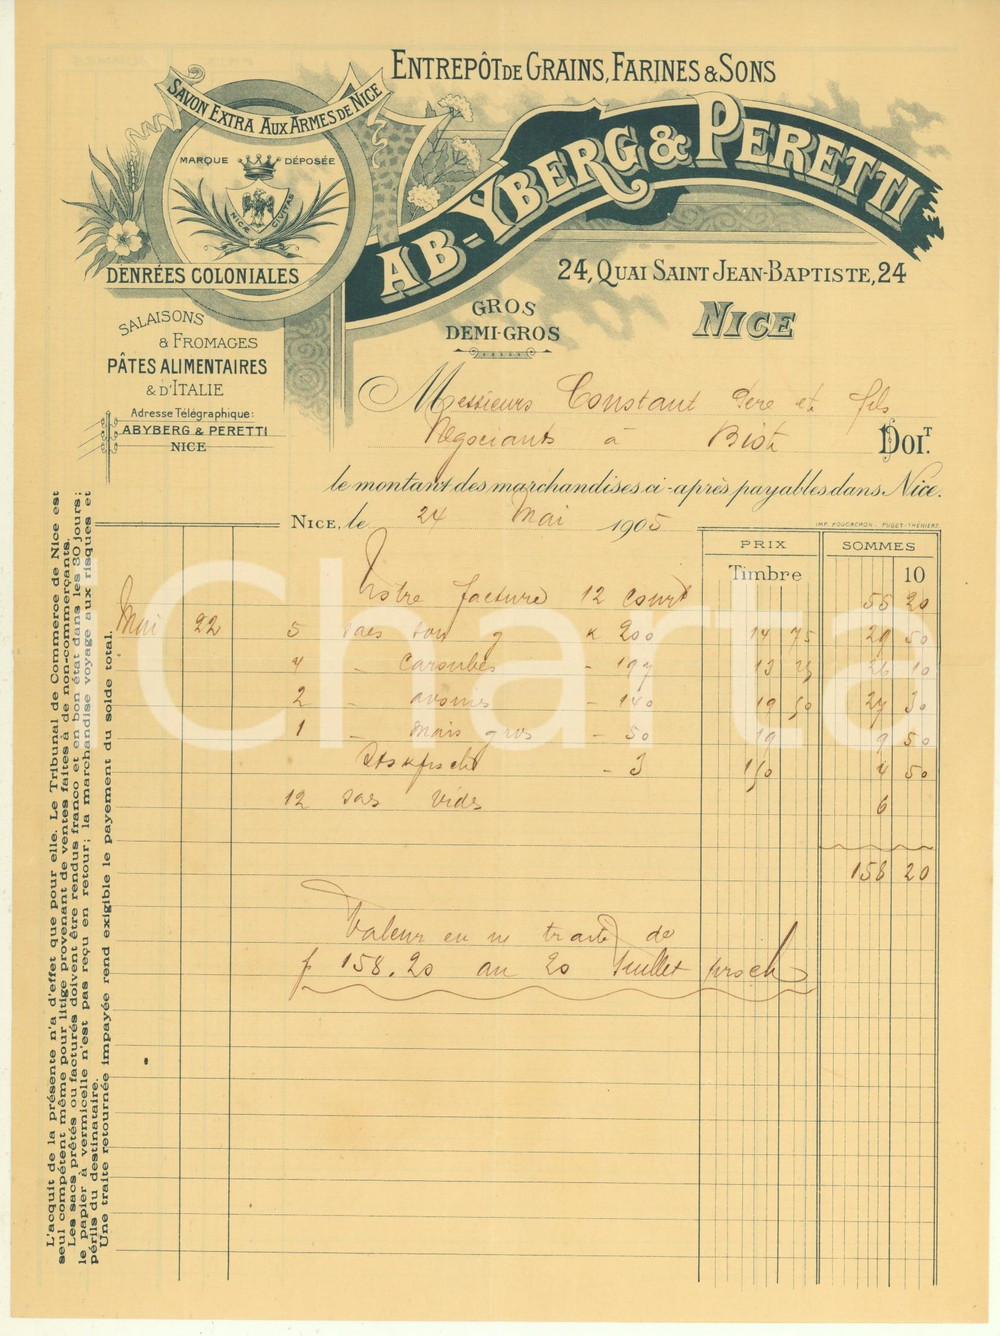 ENTREPÔT DE GRAINS, FARINES & SONS
SAVON EXTRA AUX ARMES DE NICE
MARQUE DÉPOSÉE
NICÆ CIVITAS
AB-YBERG & PERETTI
DENRÉES COLONIALES
24, QUAI SAINT JEAN-BAPTISTE, 24
GROS
DEMI-GROS
NICE
SALAISONS
& FROMAGES
PÂTES ALIMENTAIRES
& D'ITALIE
Adresse Télégraphique:
ABYBERG & PERETTI
NICE
Messieurs Constant Père et fils
Négociants à Biot DOIT.
le montant des marchandises ci-après payables dans Nice.
NICE, le 24 Mai 1905
IMP. FOUCACHON - PUGET-THÉNIERS
PRIX SOMMES
Timbre 10
Notre facture 12 court 55 20
Mai 22 5 sacs son g K 200 14 75 29 50
4 - caroubes - 197 13 25 26 10
2 - avoines - 140 19 50 27 30
1 - maïs gros - 50 19 9 50
Stokfisch - 3 1 50 4 50
12 sacs vides 6
158 20
Valeur en n/ traite de
f 158.20 au 20 Juillet proch
L'acquit de la présente n'a d'effet que pour elle. Le Tribunal de Commerce de Nice est
seul compétent même pour litige provenant de ventes faites à de non-commerçants.
Les sacs prêtés ou facturés doivent être rendus franco et en bon état dans les 30 jours;
le papier à vermicelle n'est pas reçu en retour; la marchandise voyage aux risques et
périls du destinataire.
Une traite retournée impayée rend exigible le payement du solde total.
Charta